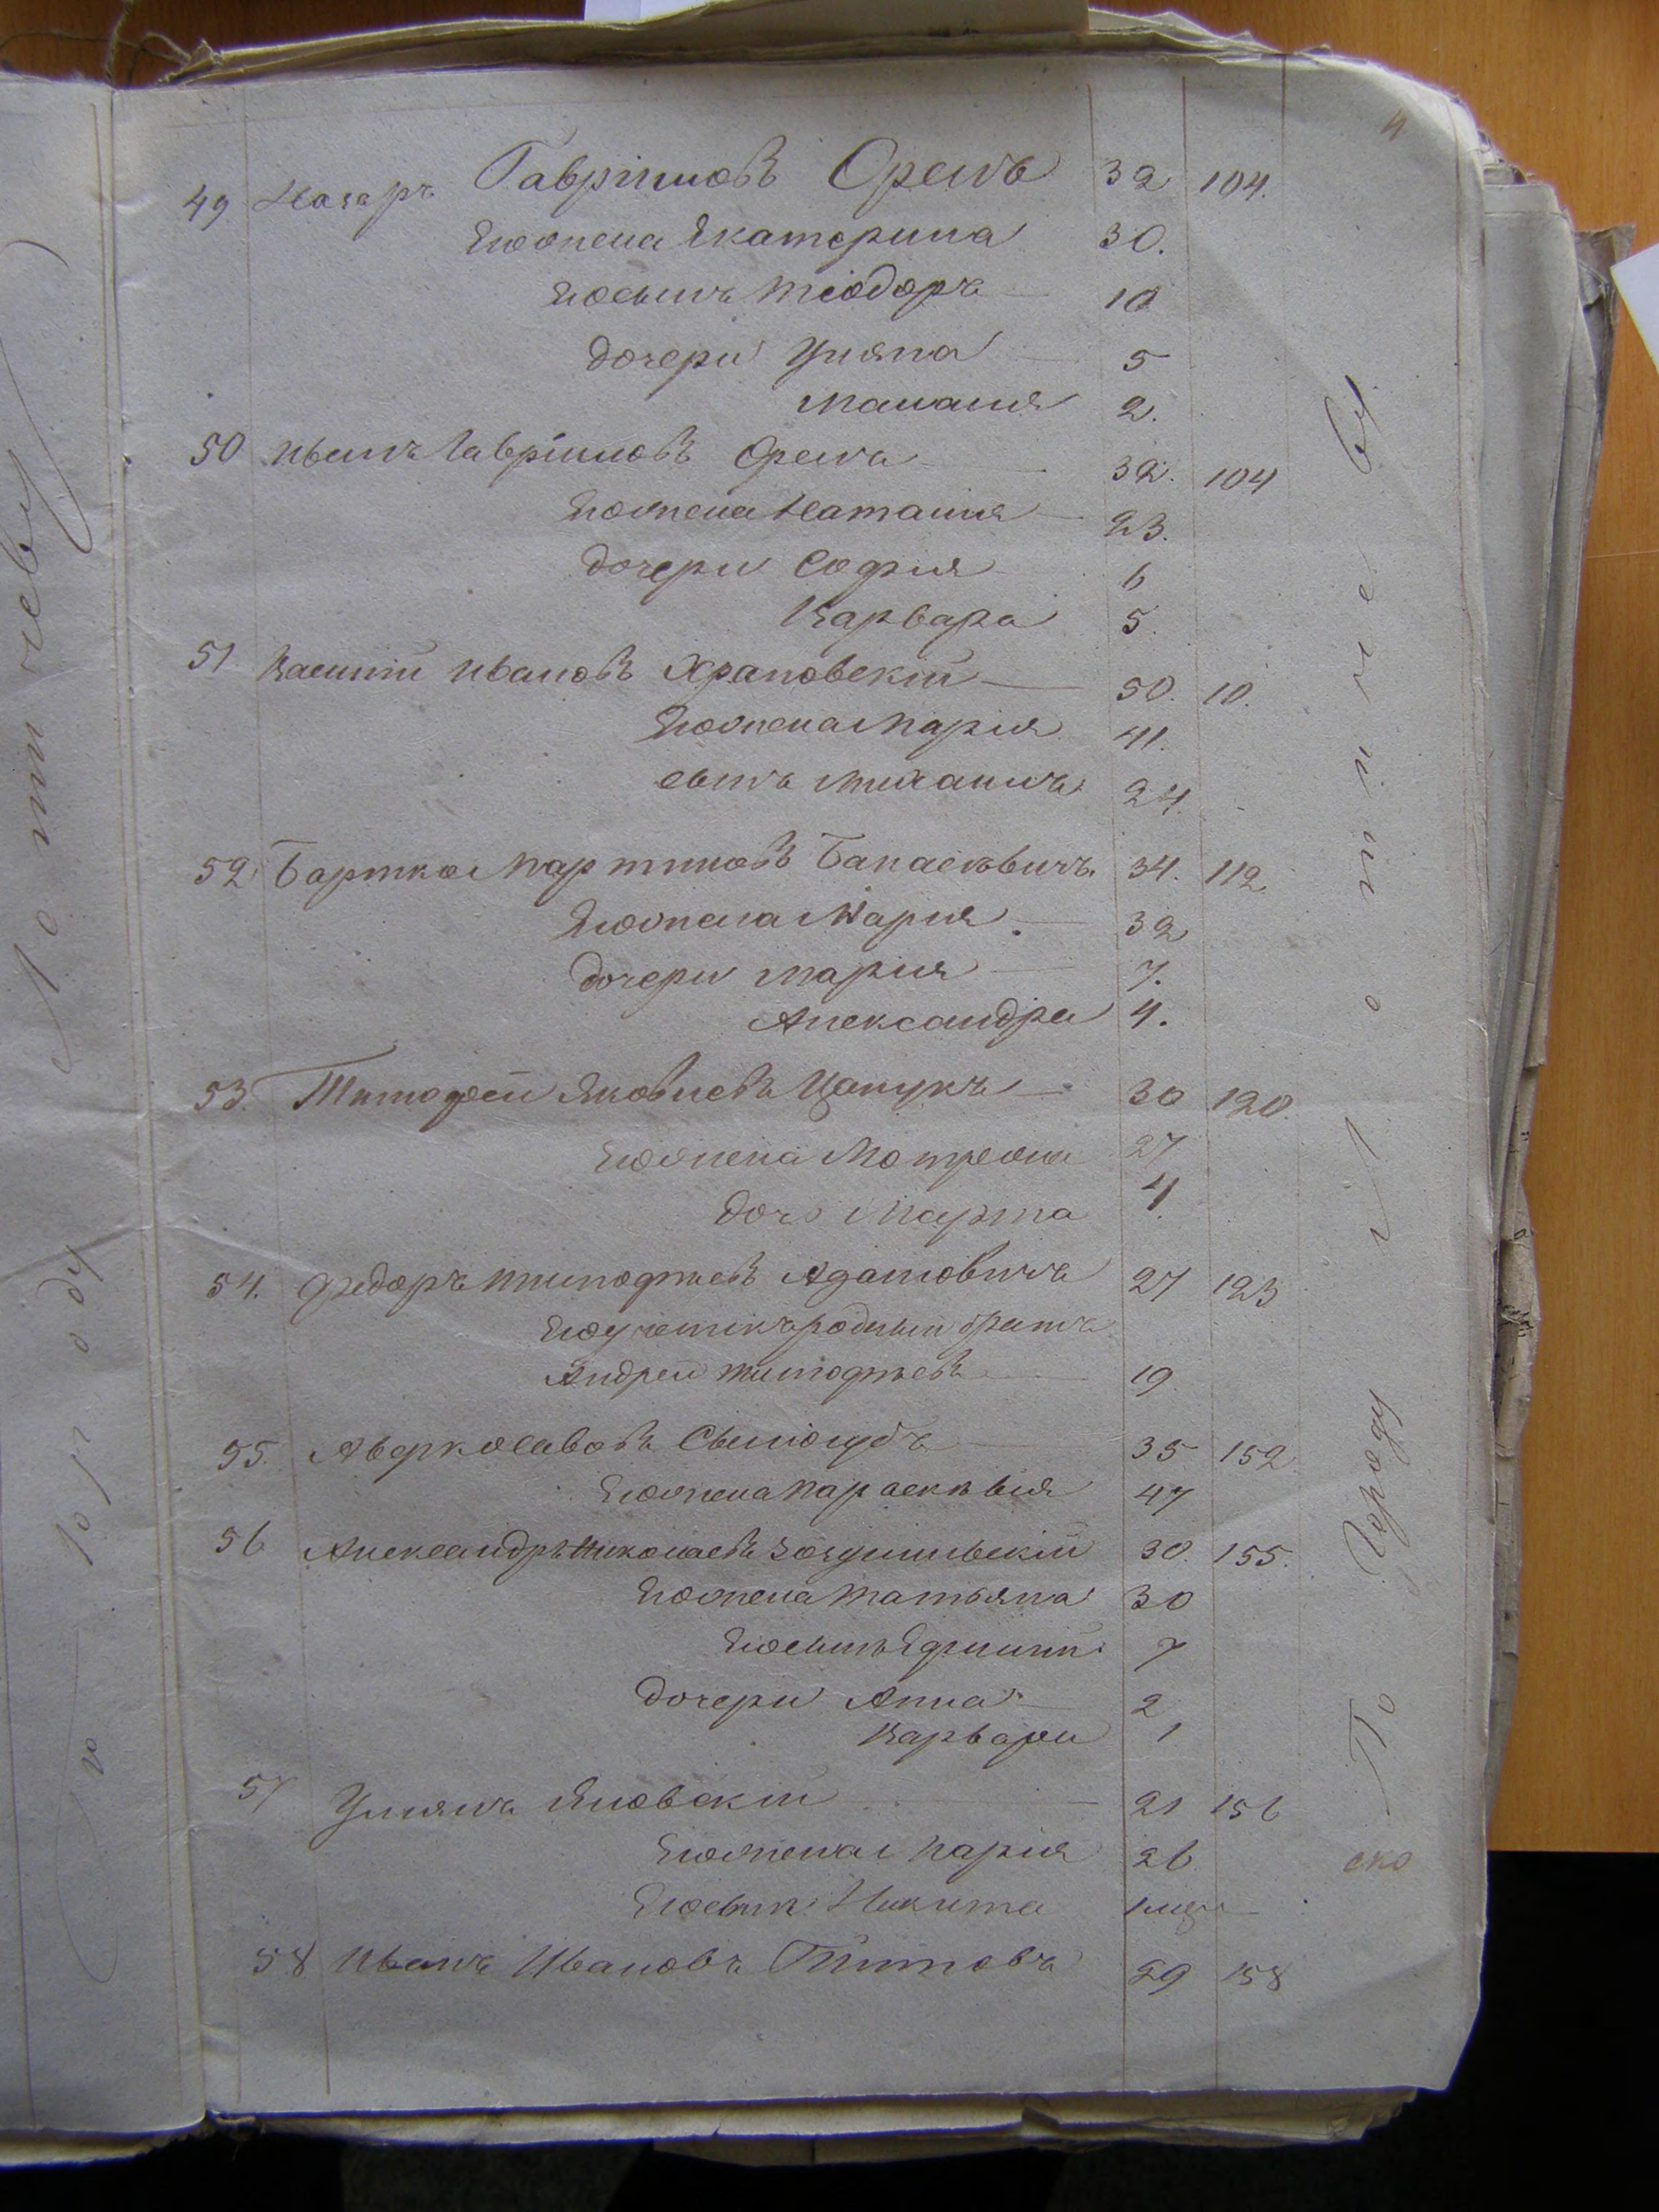 4
49 Назаръ Гавріиловъ Орелъ 32 104.
Его жена Екатерина 30.
Его сынъ Теодоръ 10
дочери Уляна 5
Маланія 2.
50 Иванъ Гавріиловъ Орелъ 32. 104
Его жена Наталия 23.
дочери София 6
Варвара 5.
51 Василій Ивановъ Храповскій 50. 10.
Его жена Марія 41.
сынъ Михаилъ 24.
52 Бартко Мартиновъ 34. 112.
Его жена Мария 32
дочери Мария 7.
Александра 4.
53. Тимофей Яковлевъ Цапукъ 30 120.
Его жена Мотрона 27
дочь Марта 4
54. Федоръ Тимофиевъ Адамовичъ 27 123
Его родный братъ
Андрей Тимофиевъ 19
55. Аверко Савовъ 35 152
Его жена Параскевія 47
56 Александръ Николаевъ 30. 155.
Его жена Татьяна 30
Его сынъ Ефимій 7
дочери Анна 2
Варвара 1
57 Улиянъ Яновскій 21 156
Его жена Марія 26
Его сынъ Никита 1 мъ
58 Иванъ Ивановъ Титовъ 29 158
По Городу Летичеву
ско
По городу Летичеву